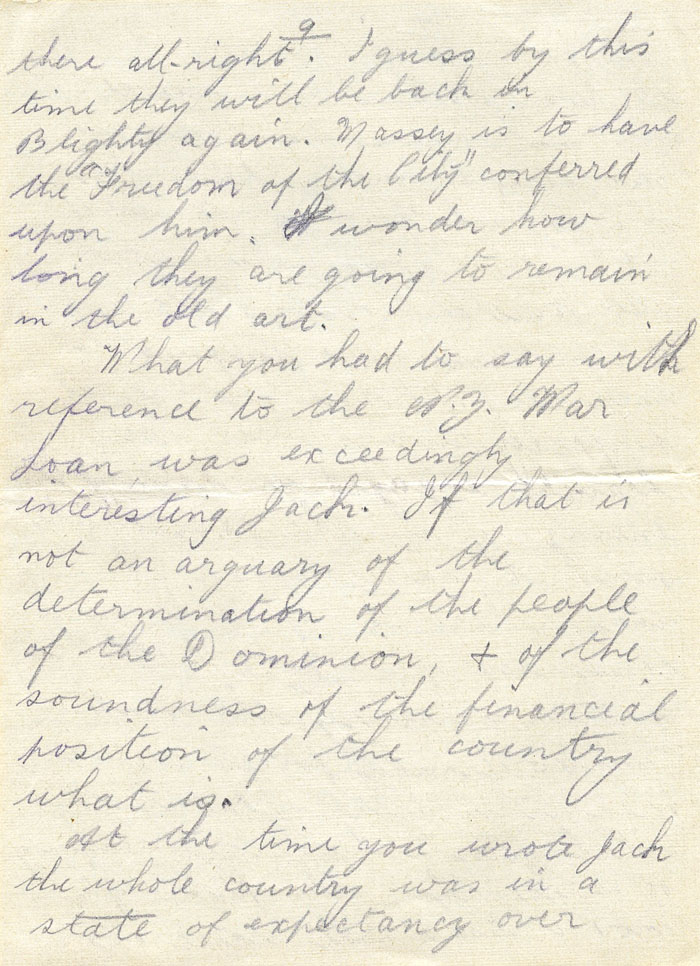 9
there all-right. I guess by this
time they will be back in
Blighty again. Massey is to have
the "Freedom of the City" conferred
upon him. I wonder how
long they are going to remain
in the old art.
What you had to say with
reference to the N.Z. War
Loan was exceedingly
interesting Jack. If that is
not an arguary of the
determination of the people
of the Dominion, & of the
soundness of the financial
position of the country
what is.
At the time you wrote Jack
the whole country was in a
state of expectancy over